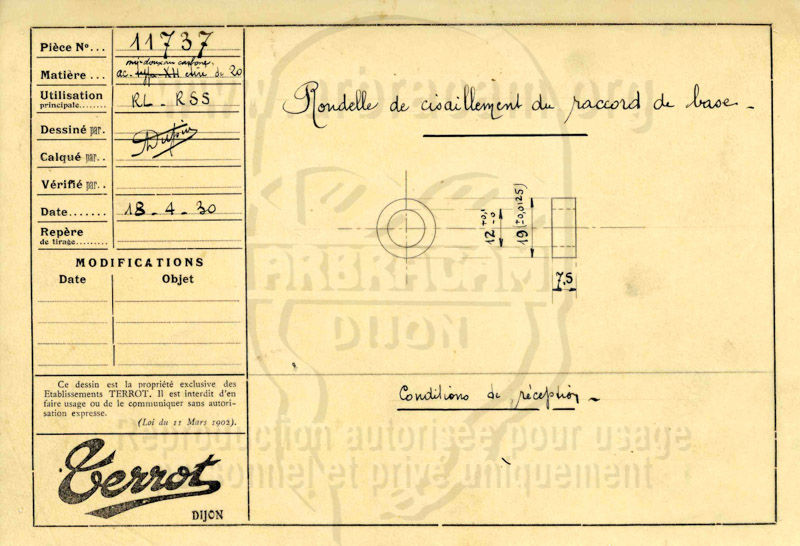 Pièce Nº... 11737
my-doux au carbone
Matière ... ac. type XH étiré de 20
Utilisation
principale........ RL - RSS
Dessiné par.
Calqué par..
Vérifié par..
Date....... 18 - 4 - 30
Repère
de tirage.......
MODIFICATIONS
Date Objet
Ce dessin est la propriété exclusive des
Etablissements TERROT. Il est interdit d'en
faire usage ou de le communiquer sans autori-
sation expresse.
(Loi du 11 Mars 1902).
Terrot
DIJON
Rondelle de cisaillement du raccord de base -
12 +0,1 -0
19 (±0,0125)
7.5
Conditions de réception -
ARBRACAM
DIJON
Reproduction autorisée pour usage
personnel et privé uniquement